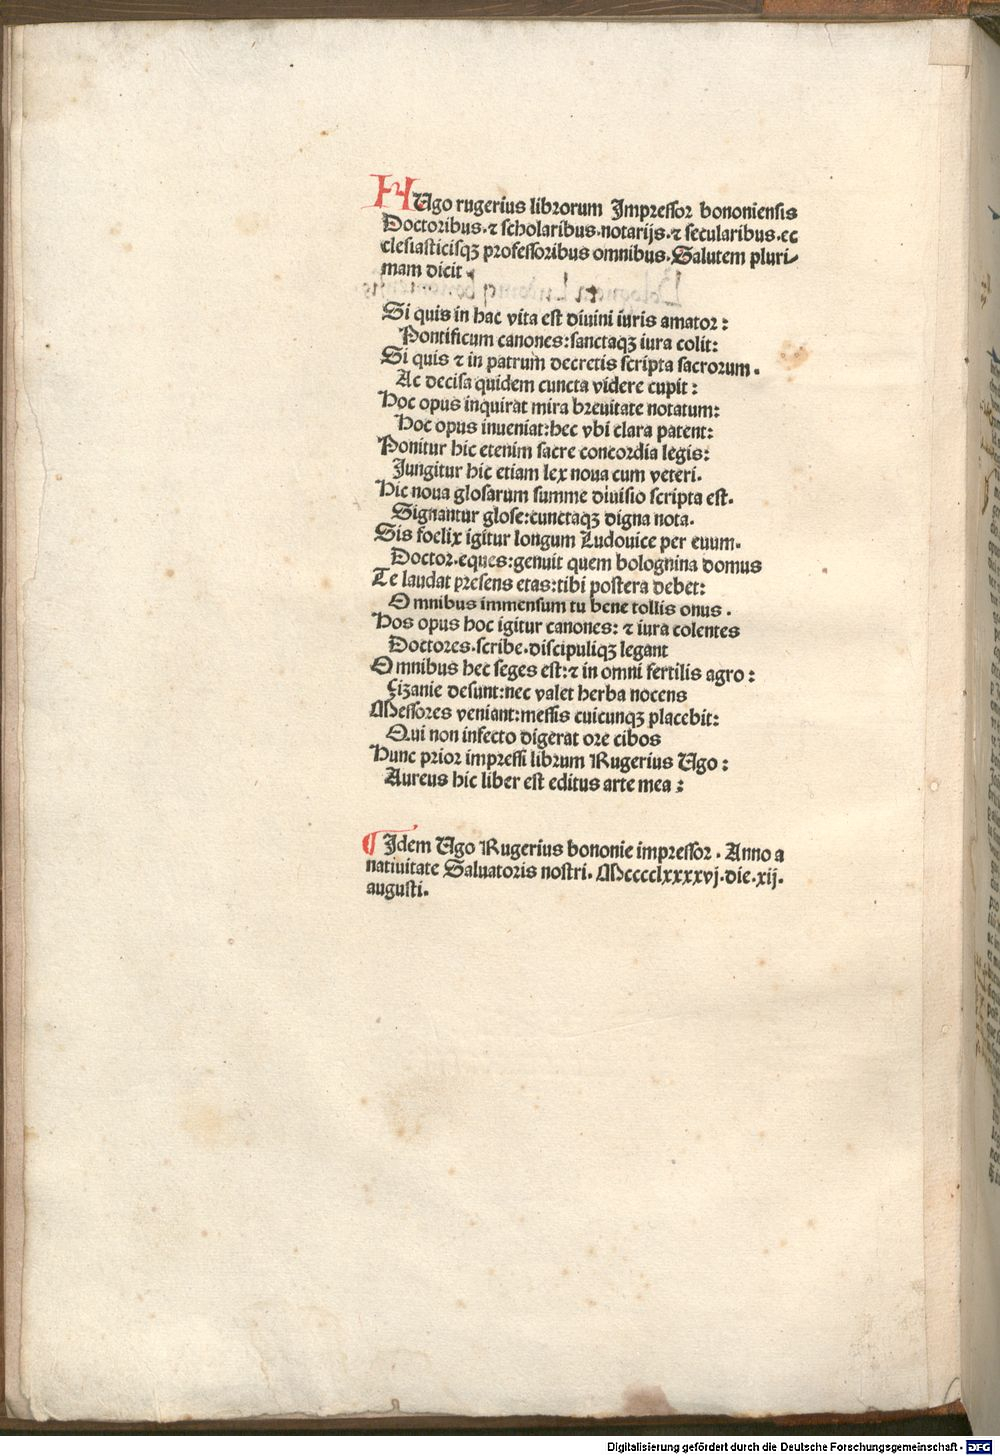 HUgo rugerius librorum Impressor bononiensis
Doctoribus·⁊ scholaribus·notarijs·⁊ secularibus·ec
clesiasticisqꝫ professoribus omnibus·Salutem pluri⸗
mam dicit·
Si quis in hac vita est diuini iuris amator:
Pontificum canones:sanctaqꝫ iura colit:
Si quis ⁊ in patrum decretis scripta sacrorum·
Ac decisa quidem cuncta videre cupit:
Hoc opus inquirat mira breuitate notatum:
Hoc opus inueniat:hec vbi clara patent:
Ponitur hic etenim sacre concordia legis:
Jungitur hic etiam lex noua cum veteri·
Hic noua glosarum summe diuisio scripta est·
Signantur glose:cunctaqꝫ digna nota·
Sis foelix igitur longum Ludouice per euum·
Doctor·eques:genuit quem bolognina domus
Te laudat presens etas:tibi postera debet:
Omnibus immensum tu bene tollis onus·
Hos opus hoc igitur canones: ⁊ iura colentes
Doctores·scribe·discipuliqꝫ legant
Omnibus hec seges est:⁊ in omni fertilis agro:
Çizanie desunt:nec valet herba nocens
Messores veniant:messis cuicunqꝫ placebit:
Qui non infecto digerat ore cibos
Hunc prior impressi librum Rugerius Ugo:
Aureus hic liber est editus arte mea:
¶ Idem Ugo Rugerius bononie impressor· Anno a
natiuitate Saluatoris nostri· Mcccclxxxxvj·die·xij·
augusti·
Digitalisierung gefördert durch die Deutsche Forschungsgemeinschaft - DFG